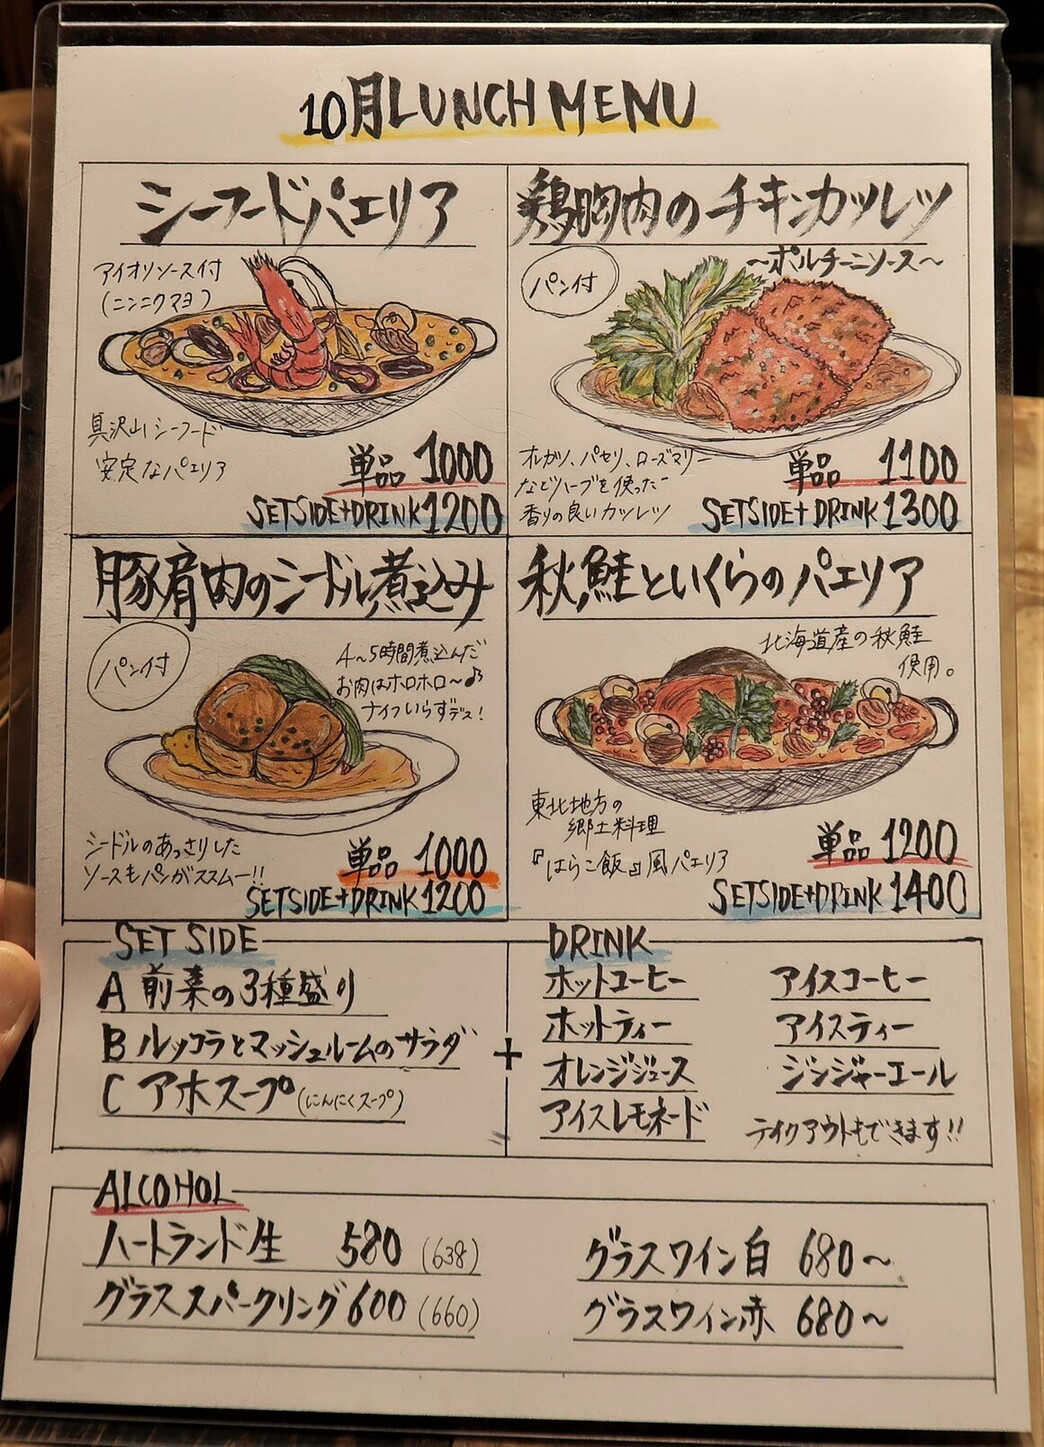 10月LUNCH MENU
シーフードパエリア
アイオリソース付
(ニンニクマヨ)
具沢山シーフード
安定なパエリア
単品 1000
SETSIDE+DRINK1200
鶏胸肉のチキンカツレツ
〜ポルチーニソース〜
パン付
オレガノ、パセリ、ローズマリー
などハーブを使った
香りの良いカツレツ
単品 1100
SETSIDE+DRINK1300
豚肩肉のシードル煮込み
パン付
4〜5時間煮込んだ
お肉はホロホロ〜♪
ナイフいらずデス!
シードルのあっさりした
ソースもパンがススムー!!
単品 1000
SETSIDE+DRINK1200
秋鮭といくらのパエリア
北海道産の秋鮭
使用。
東北地方の
郷土料理
『はらこ飯』風パエリア
単品 1200
SETSIDE+DRINK1400
SET SIDE
A 前菜の3種盛り
B ルッコラとマッシュルームのサラダ
C アホスープ(にんにくスープ)
+
DRINK
ホットコーヒー アイスコーヒー
ホットティー アイスティー
オレンジジュース ジンジャーエール
アイスレモネード テイクアウトもできます!!
ALCOHOL
ハートランド生 580 (638) グラスワイン白 680〜
グラススパークリング600 (660) グラスワイン赤 680〜